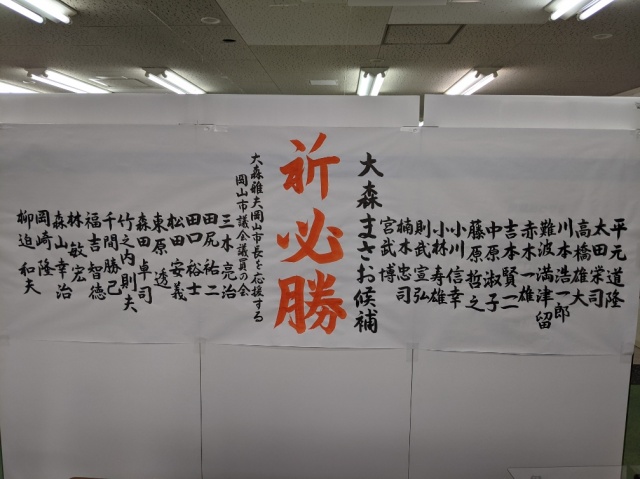 平元道隆
太田栄司
高橋雄大
川本浩一郎
難波満津留
赤木一雄
吉本賢二
中原淑子
藤原哲之
小川信幸
小林寿雄
則武宣弘
楠木忠司
宮武博
大森まさお候補
祈必勝
大森雅夫岡山市長を応援する
岡山市議会議員の会
三木亮治
田尻祐二
田口裕士
松田安義
東原透
森田卓司
竹之内則夫
千間勝己
福吉智徳
林敏宏
森山幸治
岡﨑隆
柳迫和夫